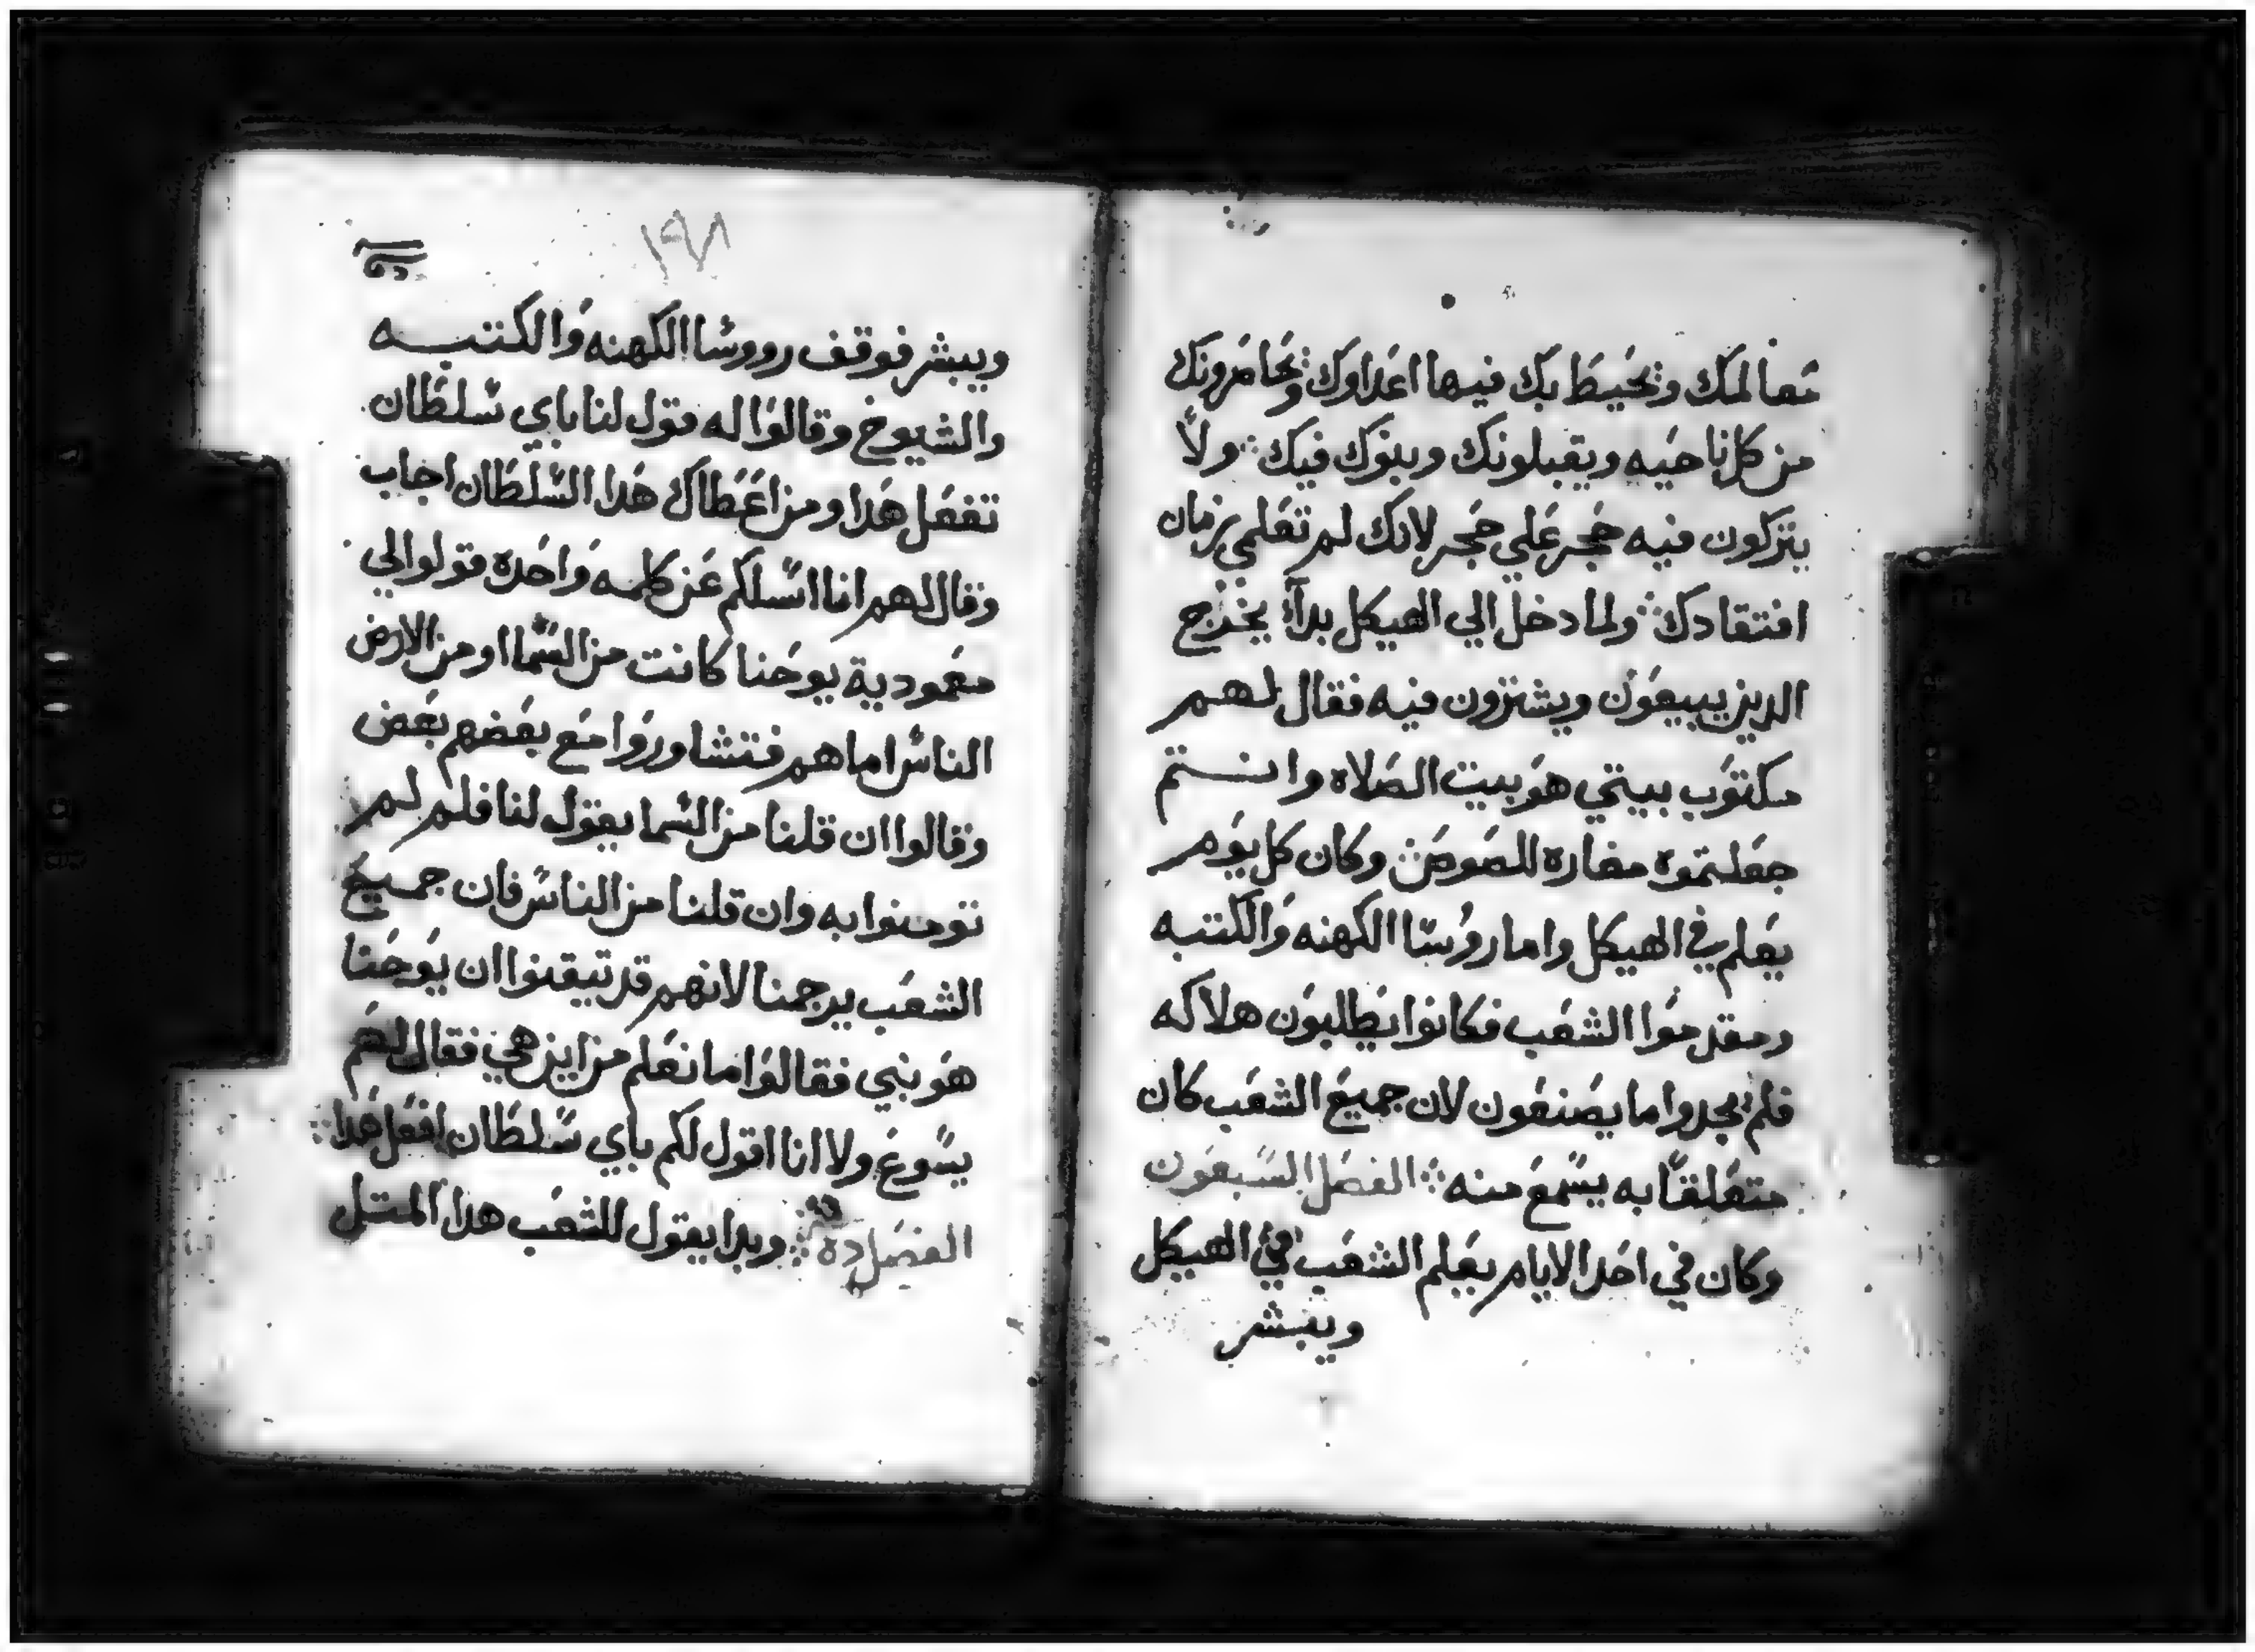 معالمك وتحيط بك فيها اعداوك وتحاصرونك
من كل ناحيه ويقبلونك وبنوك فيك ولا
يتركون فيه حجر علي حجر لانك لم تعلمي زمان
افتقادك ولما دخل الي الهيكل بدا يخرج
الدين يبيعون ويشترون فيه فقال لهم
مكتوب بيتي هو بيت الصلاه وانتم
جعلتموه مغاره للصوص وكان كل يوم
يعلم في الهيكل واما روسا الكهنه والكتبه
ومقدموا الشعب فكانوا يطلبون هلاكه
فلم يجدوا ما يصنعون لان جميع الشعب كان
متعلقا به يسمع منه الفصل السبعون
وكان في احد الايام يعلم الشعب في الهيكل
ويبشر
١٩٨
ويبشر فوقف رووسا الكهنه والكتبه
والشيوخ وقالوا له قول لنا باي سلطان
تفعل هدا ومن اعطاك هدا السلطان اجاب
وقال لهم انا اسلكم عن كلمه واحده قولوا لي
معمودية يوحنا كانت من السما او من الارض
الناس اما هم فتشاوروا مع بعضهم بعض
وقالوا ان قلنا من السما يقول لنا فلم لم
تومنوا به وان قلنا من الناس فان جميع
الشعب يرجمنا لانهم قد تيقنوا ان يوحنا
هو بني فقالوا ما نعلم من اين هي فقال لهم
يسوع ولا انا اقول لكم باي سلطان افعل هدا
الفصل وبدا يقول للشعب هدا المتل